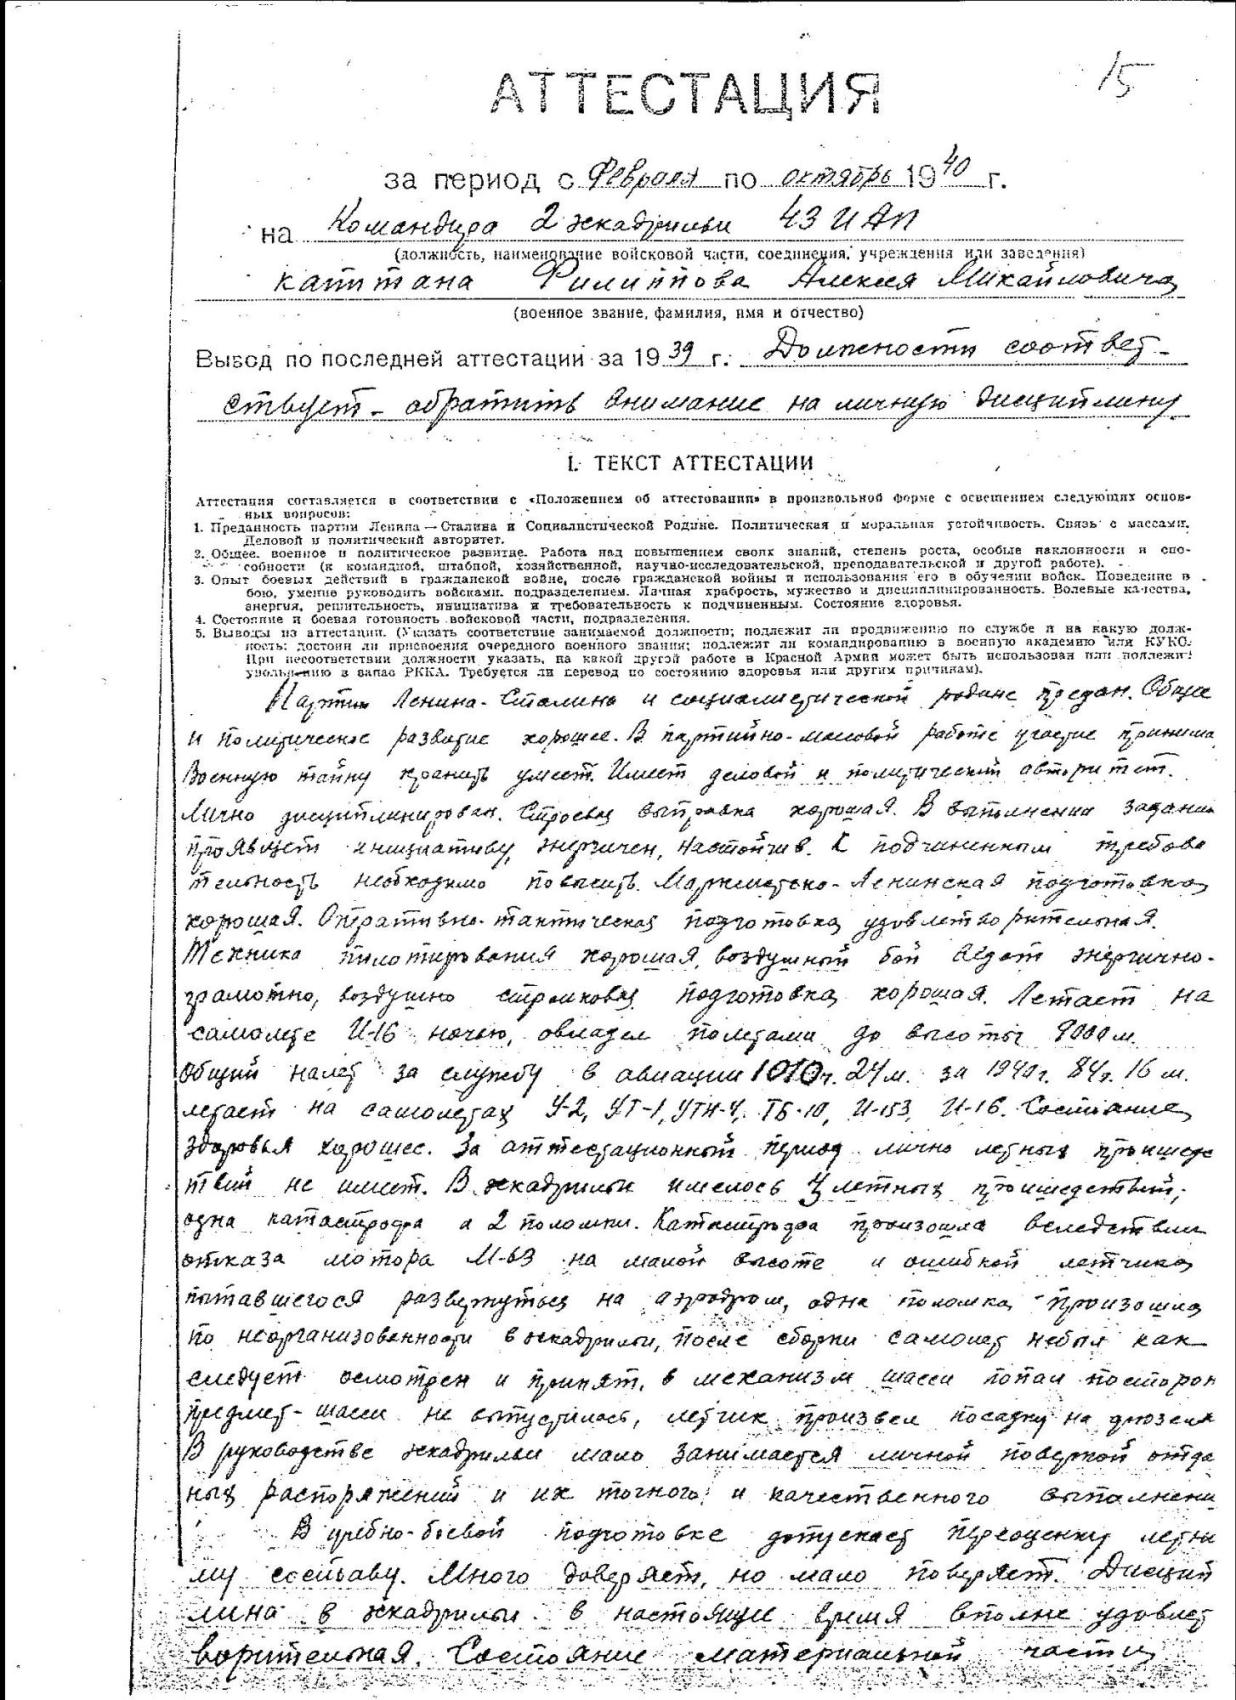 15
АТТЕСТАЦИЯ
за период с Февраля по октябрь 1940 г.
на Командира 2 эскадрильи 43 ИАП
(должность, наименование войсковой части, соединения, учреждения или заведения)
капитана Филиппова Алексея Михайловича
(военное звание, фамилия, имя и отчество)
Вывод по последней аттестации за 1939 г. Должности соответ-
ствует - обратить внимание на личную дисциплину
I. ТЕКСТ АТТЕСТАЦИИ
Аттестация составляется в соответствии с «Положением об аттестовании» в произвольной форме с освещением следующих основ-
ных вопросов:
1. Преданность партии Ленина — Сталина и Социалистической Родине. Политическая и моральная устойчивость. Связь с массами.
Деловой и политический авторитет.
2. Общее, военное и политическое развитие. Работа над повышением своих знаний, степень роста, особые наклонности и спо-
собности (к командной, штабной, хозяйственной, научно-исследовательской, преподавательской и другой работе).
3. Опыт боевых действий в гражданской войне, после гражданской войны и использования его в обучении войск. Поведение в
бою, умение руководить войсками, подразделением. Личная храбрость, мужество и дисциплинированность. Волевые качества,
энергия, решительность, инициатива и требовательность к подчиненным. Состояние здоровья.
4. Состояние и боевая готовность войсковой части, подразделения.
5. Выводы из аттестации. (Указать соответствие занимаемой должности; подлежит ли продвижению по службе и на какую долж-
ность; достоин ли присвоения очередного военного звания; подлежит ли командированию в военную академию или КУКС.
При несоответствии должности указать, на какой другой работе в Красной Армии может быть использован или подлежит
увольнению в запас РККА. Требуется ли перевод по состоянию здоровья или другим причинам).
Партии Ленина-Сталина и социалистической родине предан. Общее
и политическое развитие хорошее. В партийно-массовой работе участие принима
Военную тайну хранить умеет. Имеет деловой и политический авторитет.
Лично дисциплинирован. Строевая выправка хорошая. В выполнении задании
проявляет инициативу, энергичен, настойчив. К подчиненным требова
тельность необходимо повысить. Марксистско-Ленинская подготовка
хорошая. Оперативно-тактическая подготовка удовлетворительная.
Техника пилотирования хорошая, воздушный бой ведет энергично-
грамотно, воздушно стрелковая подготовка хорошая. Летает на
самолете И-16 ночью, овладел полетами до высоты 8000 м.
Общий налет за службу в авиации 1010 ч. 24 м. за 1940 г. 84 ч. 16 м.
летает на самолетах У-2, УТ-1, УТИ-4, И-153, И-16. Состояние
здоровья хорошее. За аттестационный период лично летных происше
твий не имеет. В эскадрильи имелось 3 летных происшествий,
одна катастрофа а 2 поломки. Катастрофа произошла вследствии
отказа мотора М-63 на малой высоте и ошибкой летчика
пытавшегося развернуться на аэродром, одна поломка произошла
по неорганизованности в эскадрильи, после сборки самолет небыл как
следует осмотрен и принят, в механизм шасси попал посторон
предмет - шасси не выпустилось, летчик произвел посадку на фюзеля
В руководстве эскадрильи мало занимается личной поверкой отда
ных распоряжений и их точного и качественного выполнени
В учебно-боевой подготовке допускает переоценку летно
му составу. Много доверяет, но мало поверяет. Дисцип
лина в эскадрильи в настоящее время вполне удовлет
ворительная. Состояние материальной части